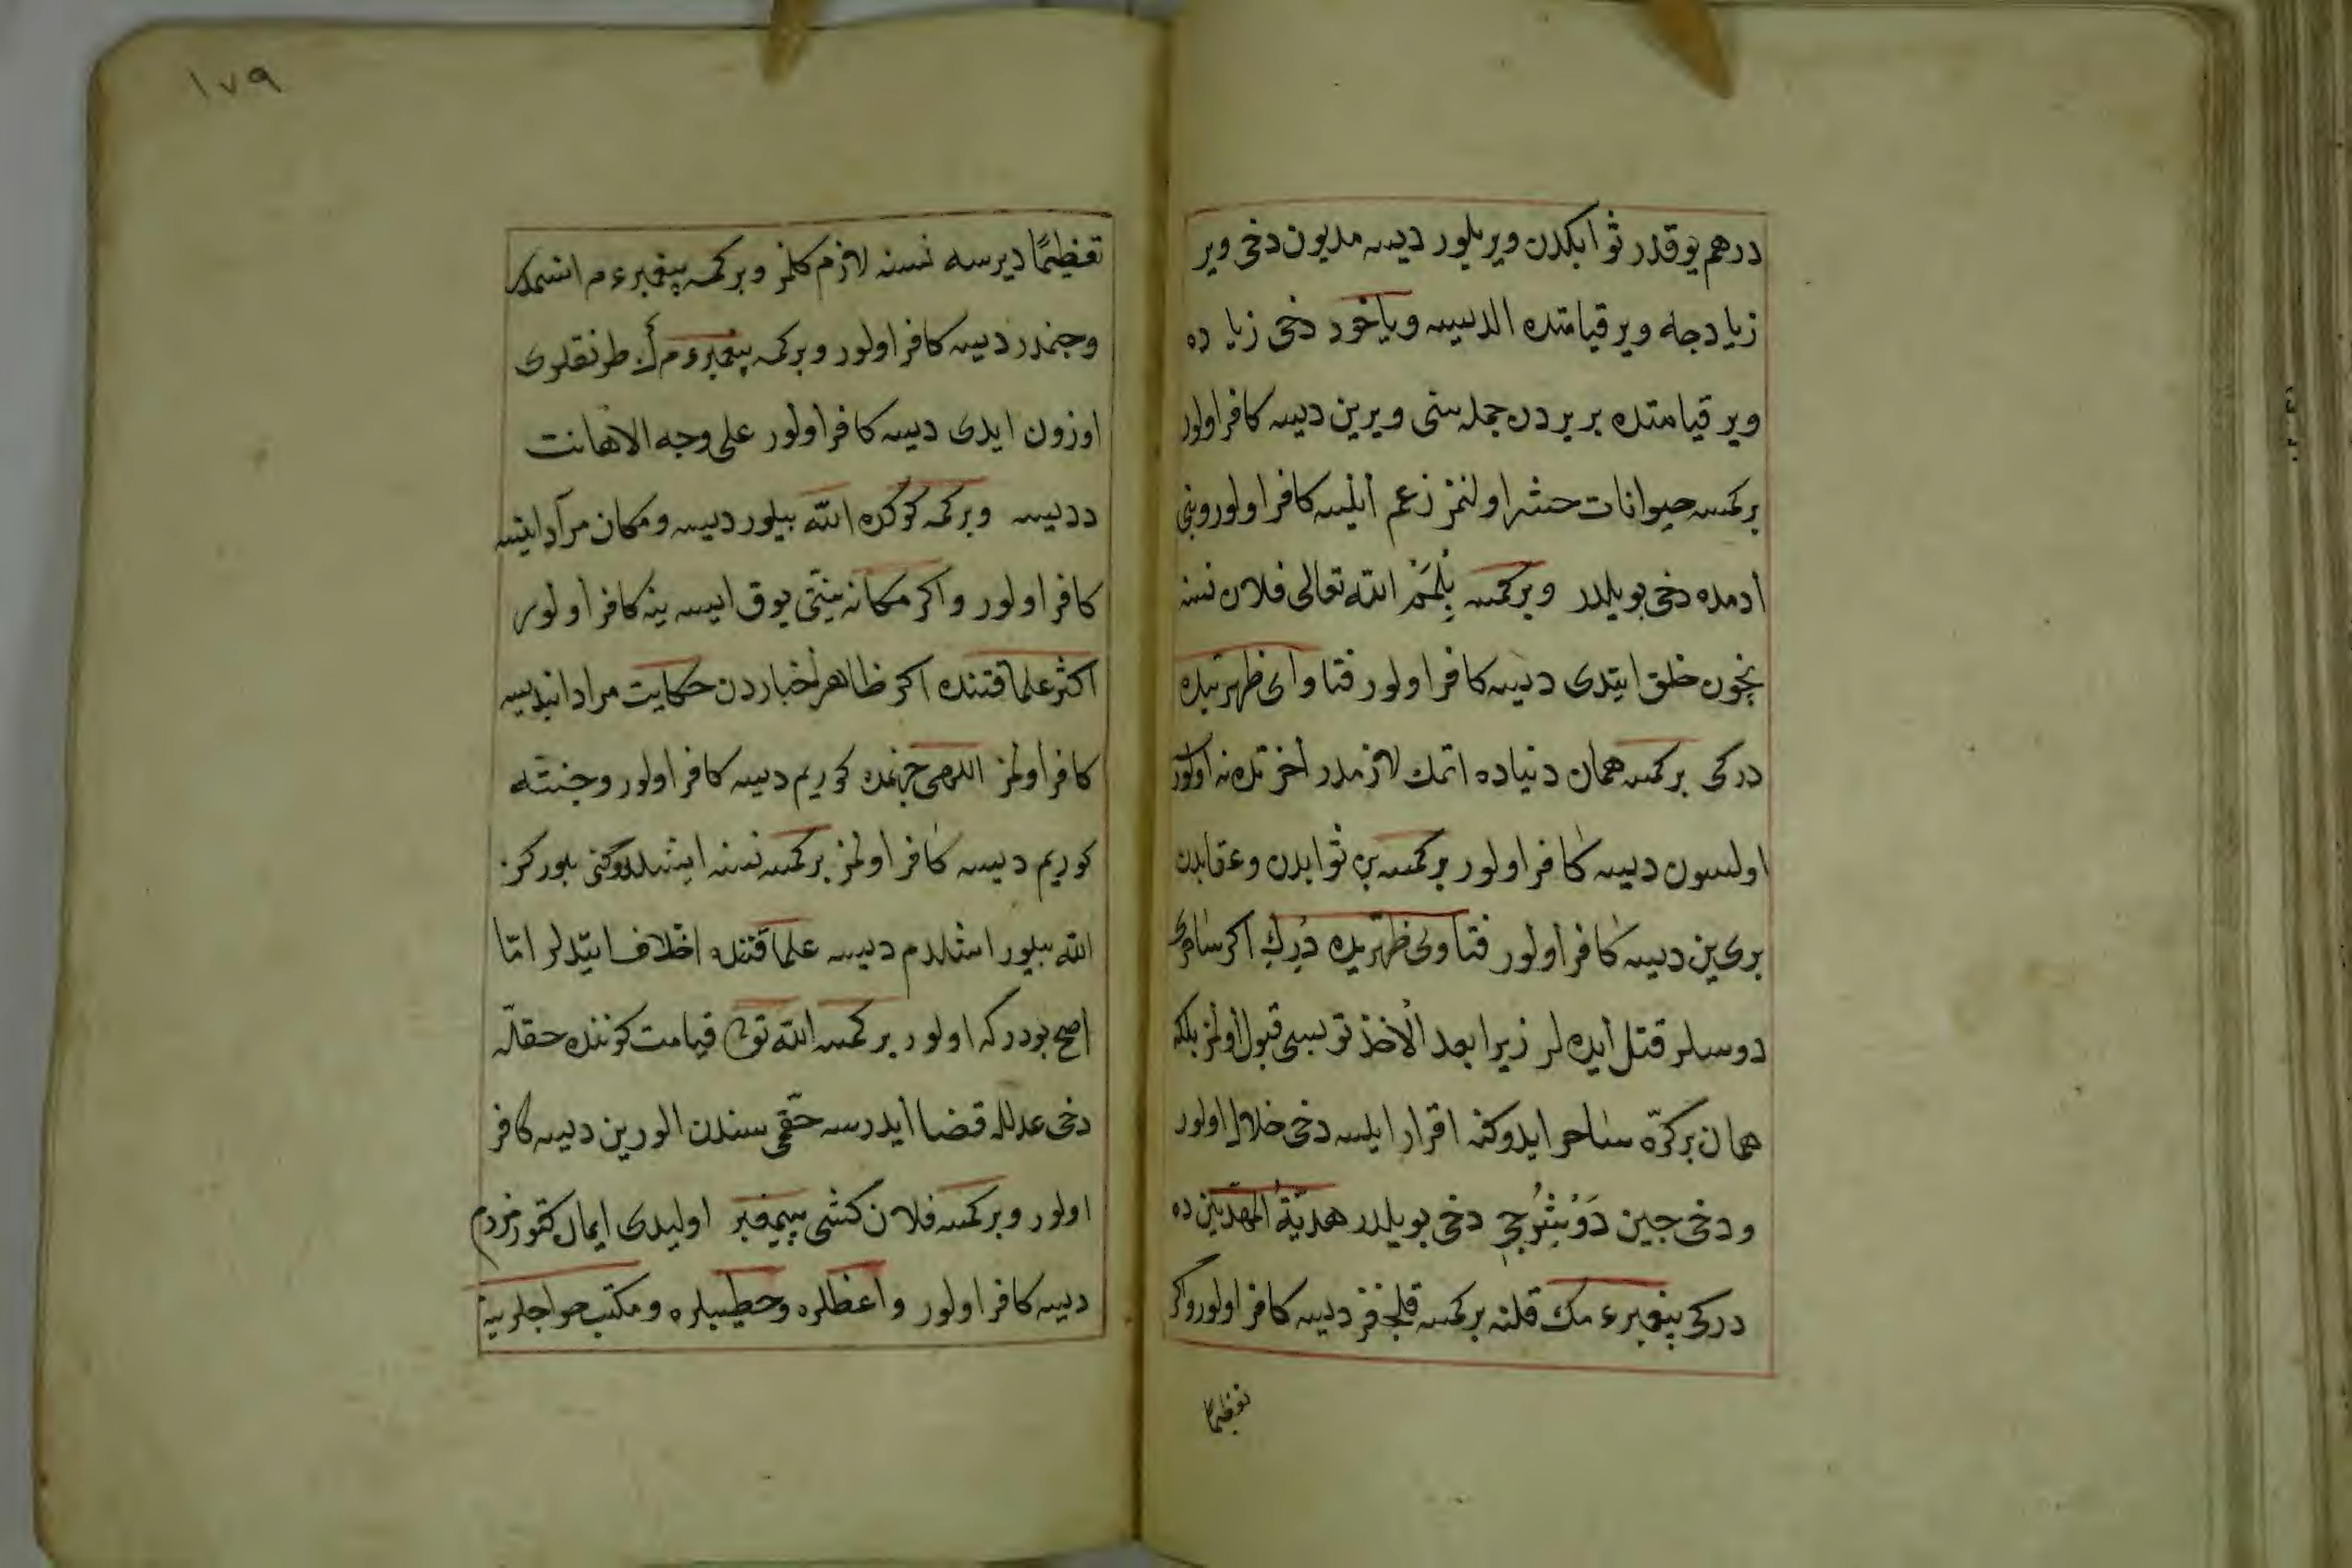 درهم يوقدر ثوابكدن ويريلور ديسه مديون دخى وير
زياد جه وير قيامتده الديسه وياخود دخى زياده
وير قيامتده بر بردن جمله سنى ويرين ديسه كافر اولور
بركمسه حيوانات حشر اولنمز زعم ايليسه كافر اولور وبنى
ادمده دخى بويلدر وبركمسه بِلْمَنم الله تعالى فلان نسنه
نچون خلق ايتدى ديسه كافر اولور فتاواى ظهريتده
دركى بركمسه همان دنياده اتمك لازمدر اخرتده نه اولور
اولسون ديسه كافر اولور بركمسه بن ثوابدن وعقابدن
برى ين ديسه كافر اولور فتاوى ظهريده ديرك اكر ساحرى
دوسلر قتل ايده لر زيرا بعد الاخذ توبسى قبول اولمز بلكه
همان بركرّه ساحر ايدوكنه اقرار ايليسه دخى حلال اولور
ودخى جين دَوْشُرجى دخى بويلدر هديّة المهتدين ده
دركى پيغمبرء مك قلنه بركمسه قلجغز ديسه كافر اولور واكر
تعظيمًا
١٧٩
تعظيمًا ديرسه نسنه لازم كلمز وبركمسه پيغمبرء م
وجنمدر ديسه كافر اولور وبركمسه پيغمبرء م طرنقلرى
اوزون ايدى ديسه كافر اولور على وجه الاهانت
دديسه وبركمسه كوكده الله بيلور ديسه ومكان مراد ايتسه
كافر اولور واكر مكانه نيّتى يوق ايسه ينه كافر اولور
اكثر علما قتنده اكر ظاهر اخباردن حكايت مراد ايديسه
كافر اولمز اللهى جهنمده كوريم ديسه كافر اولور وجنّته
كوريم ديسه كافر اولمز بركمسه نسنه ايشلدوكنى بلوركن
الله بيلور اشلدم ديسه علما قتنده اختلاف ايتديلر امّا
اصح بودركه اولور بركمسه الله تع قيامت كوننده حقله
دخى عدلله قضا ايدرسه حقّمى سندن الورين ديسه كافر
اولور وبركمسه فلان كشى پيغمبر اوليدى ايمان كتورمزدم
ديسه كافر اولور واعظلره وخطيبلره ومكتب حواجلرينه